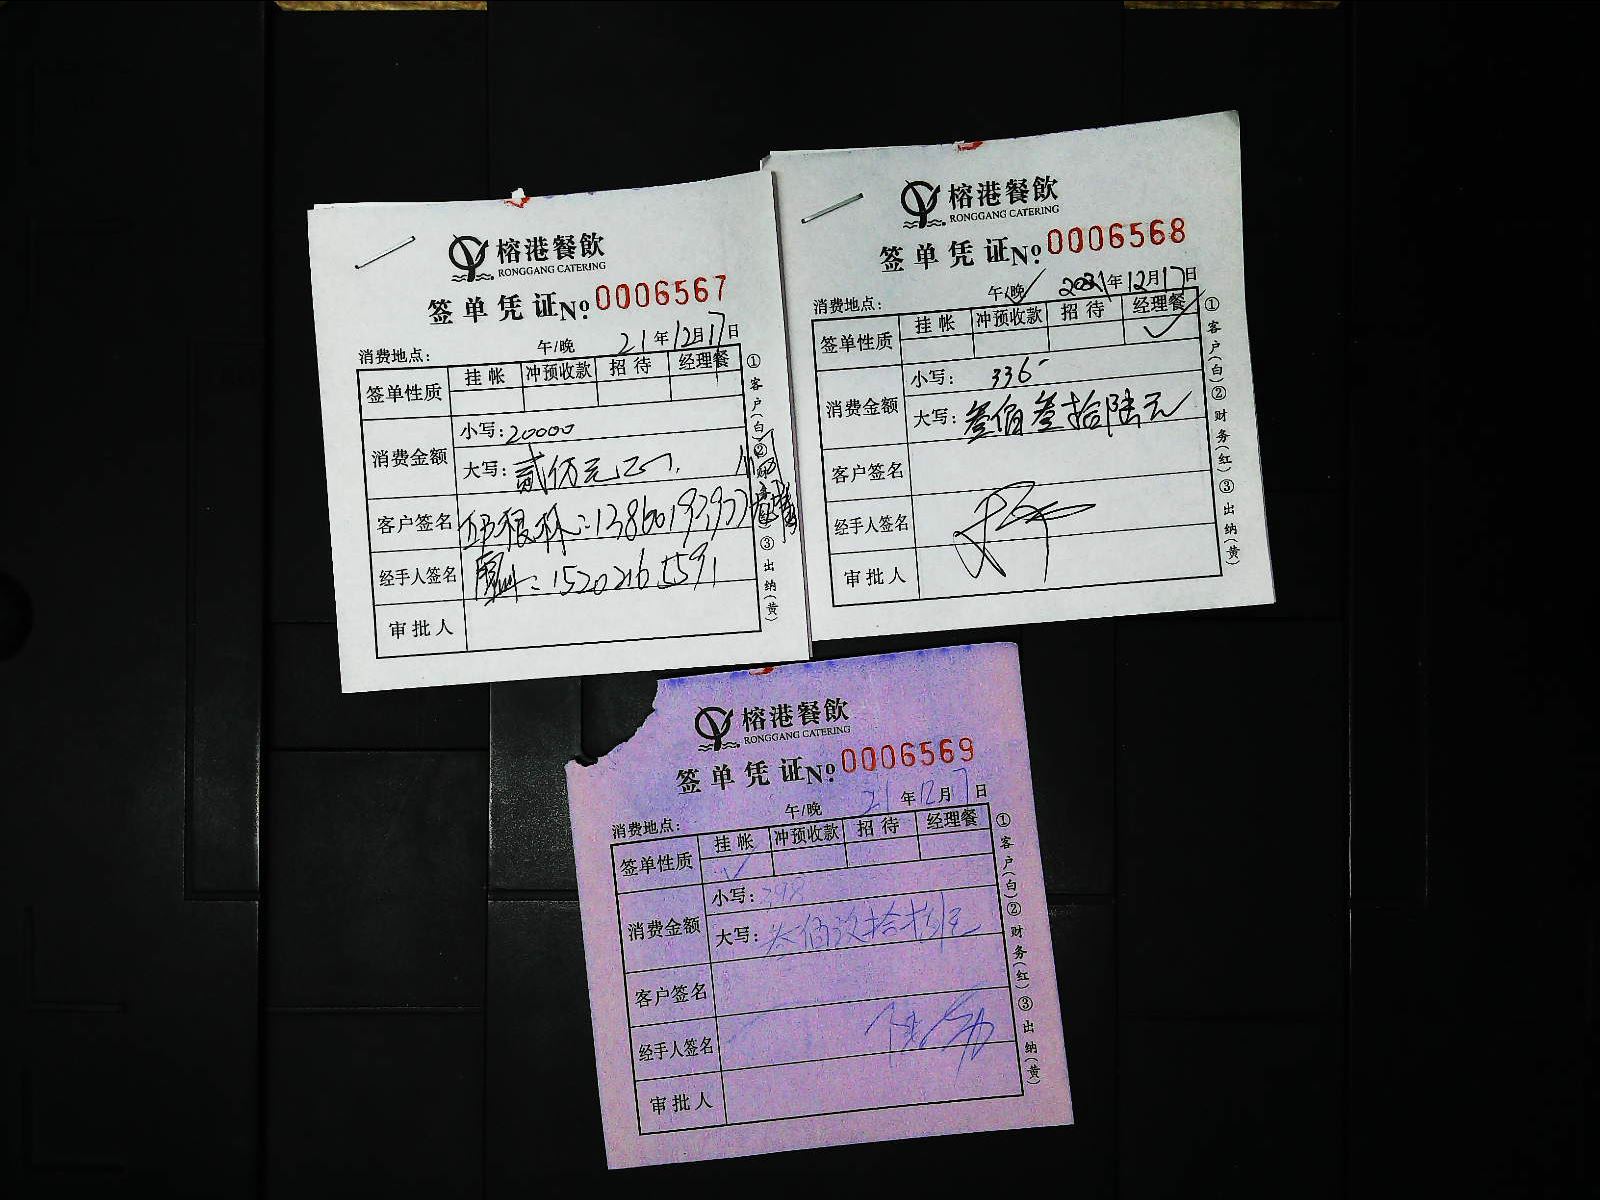 榕港餐飲
RONGGANG CATERING
签单凭证 No. 0006567
消费地点： 午/晚 21年12月17日
签单性质 挂帐 冲预收款 招待 经理餐
消费金额 小写：20000
大写：贰仟元正
客户签名
经手人签名 15202165591
审批人
①客户(白)②财务(红)③出纳(黄)
榕港餐飲
RONGGANG CATERING
签单凭证 No. 0006568
消费地点： 午/晚✓ 2021年12月17日
签单性质 挂帐 冲预收款 招待 经理餐
✓
消费金额 小写：336-
大写：叁佰叁拾陆元
客户签名
经手人签名
审批人
①客户(白)②财务(红)③出纳(黄)
榕港餐飲
RONGGANG CATERING
签单凭证 No. 0006569
消费地点： 午/晚 21年12月17日
签单性质 挂帐 冲预收款 招待 经理餐
✓
消费金额 小写：398
大写：叁佰玖拾捌元
客户签名
经手人签名
审批人
①客户(白)②财务(红)③出纳(黄)